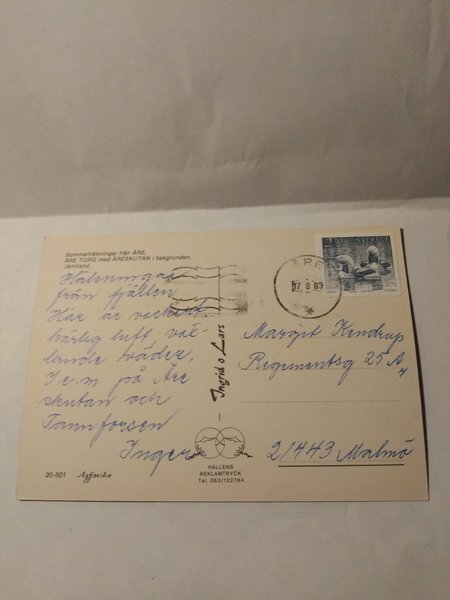 Sommarhälsningar från ÅRE.
ÅRE TORG med ÅRESKUTAN i bakgrunden.
Jämtland.
Hälsningar
från fjällen
Här är vackert
härlig luft, väl-
lande
I e.m på Åre
skutan och
Tannforsen
Inger
20-501 Agfacolor
Ingrid o Lars
HALLENS
REKLAMTRYCK
Tel. 063/122784
2.10 SVERIGE
ÅRE
17 8 83
Margit
Regementsg 25 A
21443 Malmö